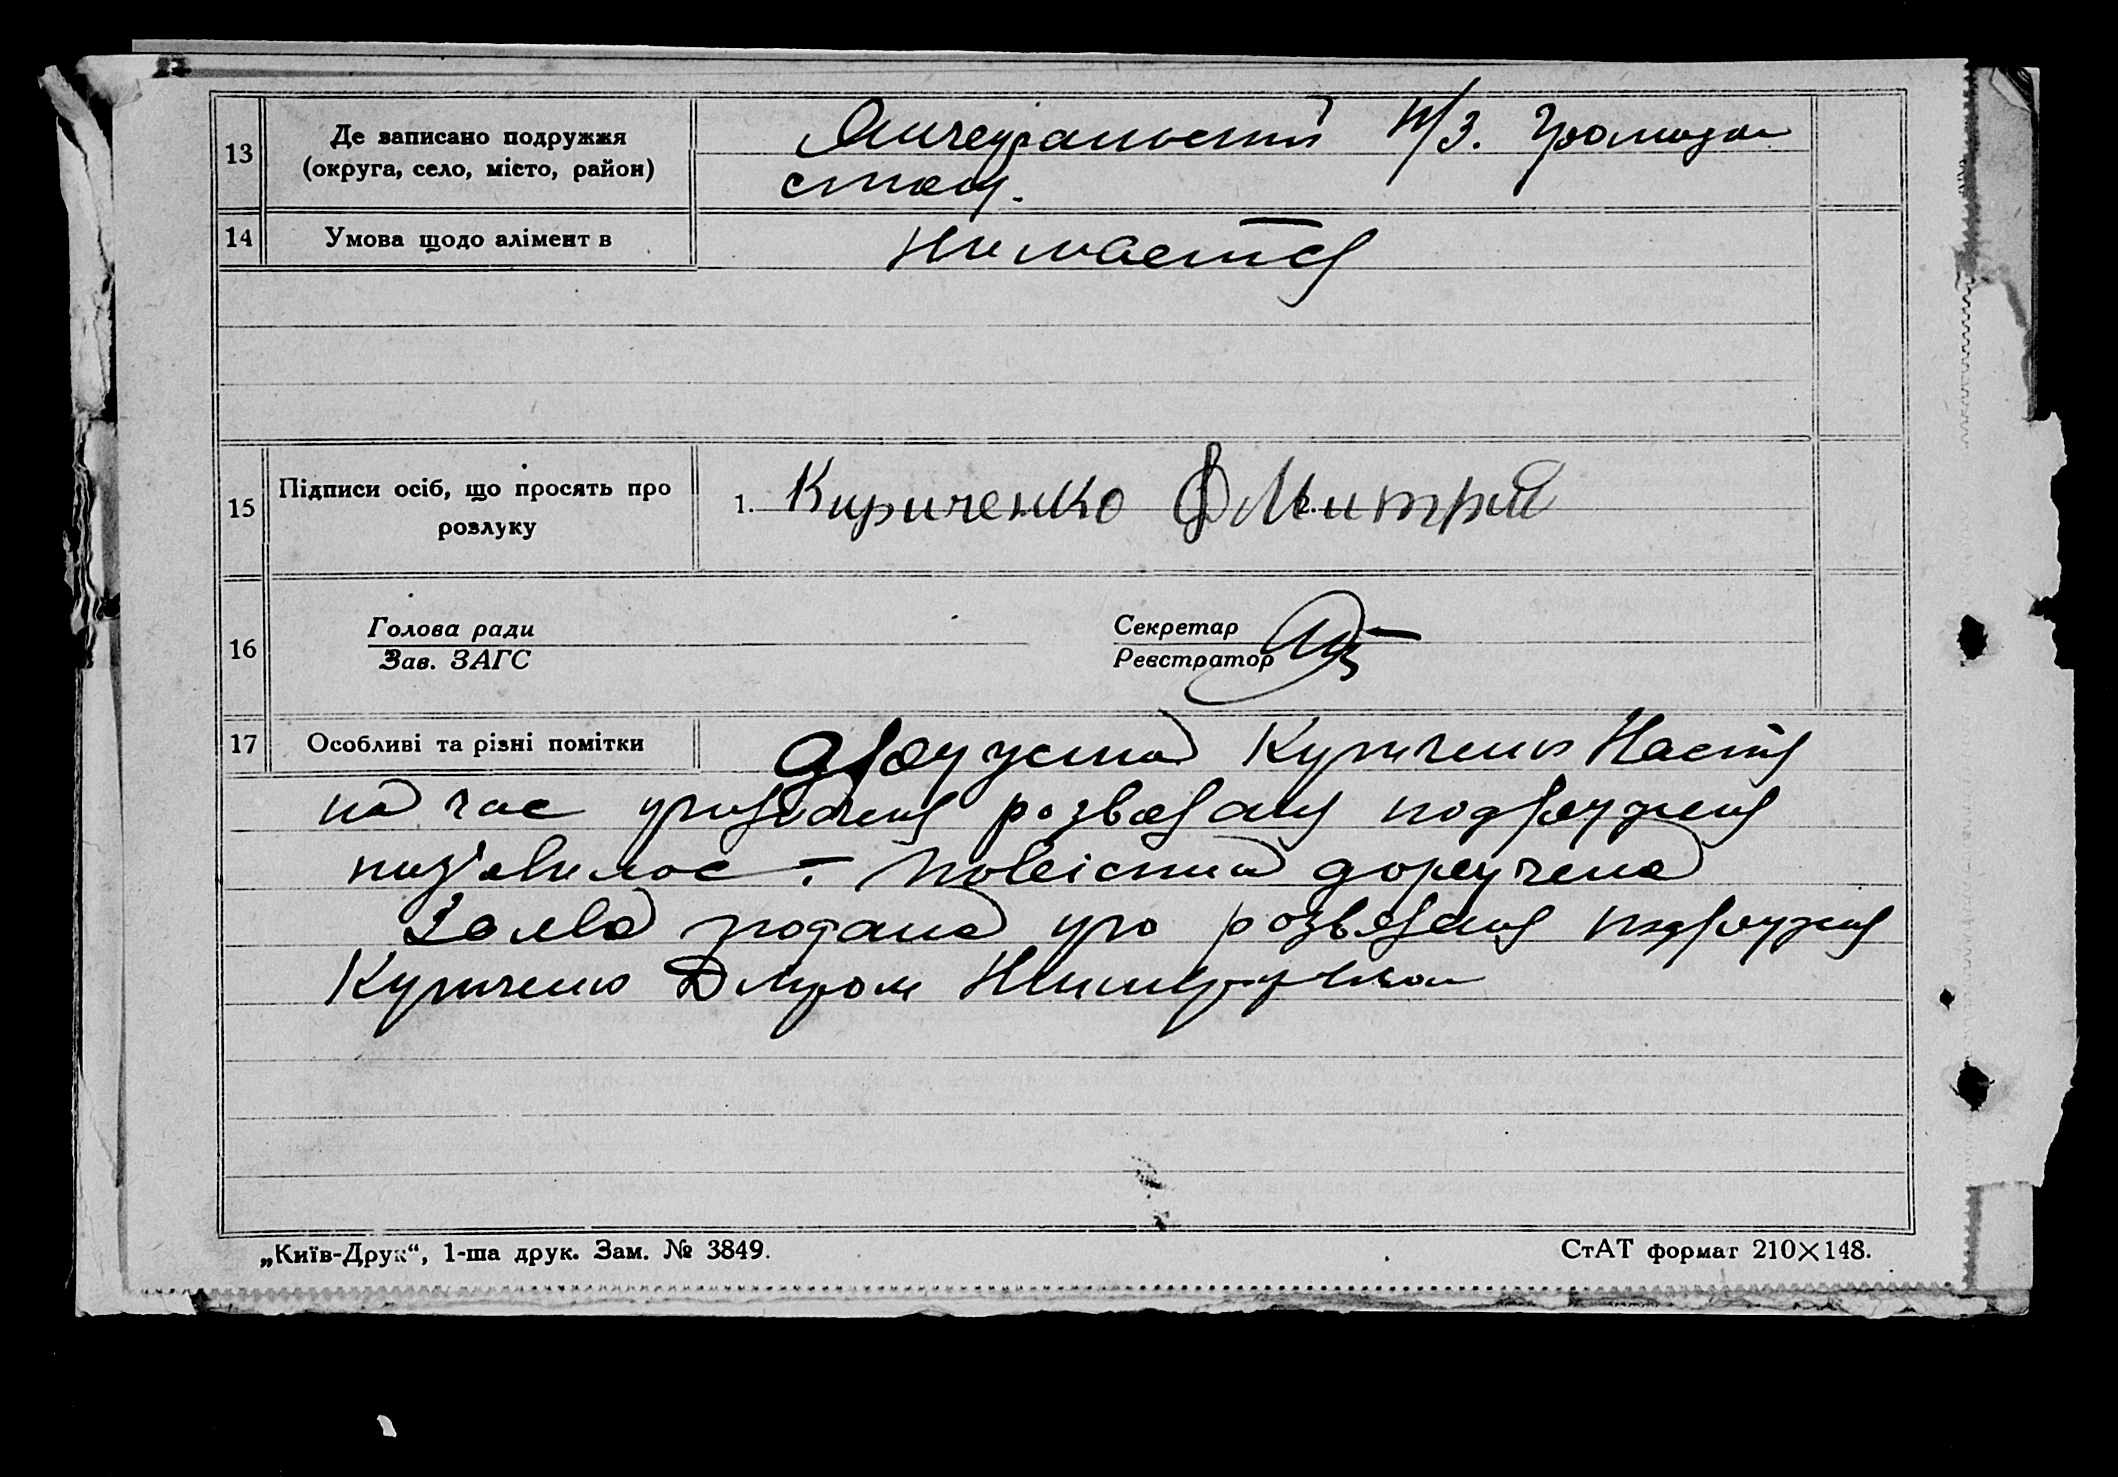 13 Де записано подружжя
(округа, село, місто, район)
п/з. Громадян
стану.
14 Умова щодо алімент в
Немається
15 Підписи осіб, що просять про
розлуку
1. Кириченко Дмитрий
2.
16 Голова ради
Зав. ЗАГС
Секретар
Реєстратор
17 Особливі та різні помітки
Кириченко Настя
на час розвязаня подружжя
нез'явилас. - Повістка доручена
Заява подана про розвязаня подружжя
Кириченко
„Київ-Друк“, 1-ша друк. Зам. № 3849.
СтАТ формат 210×148.